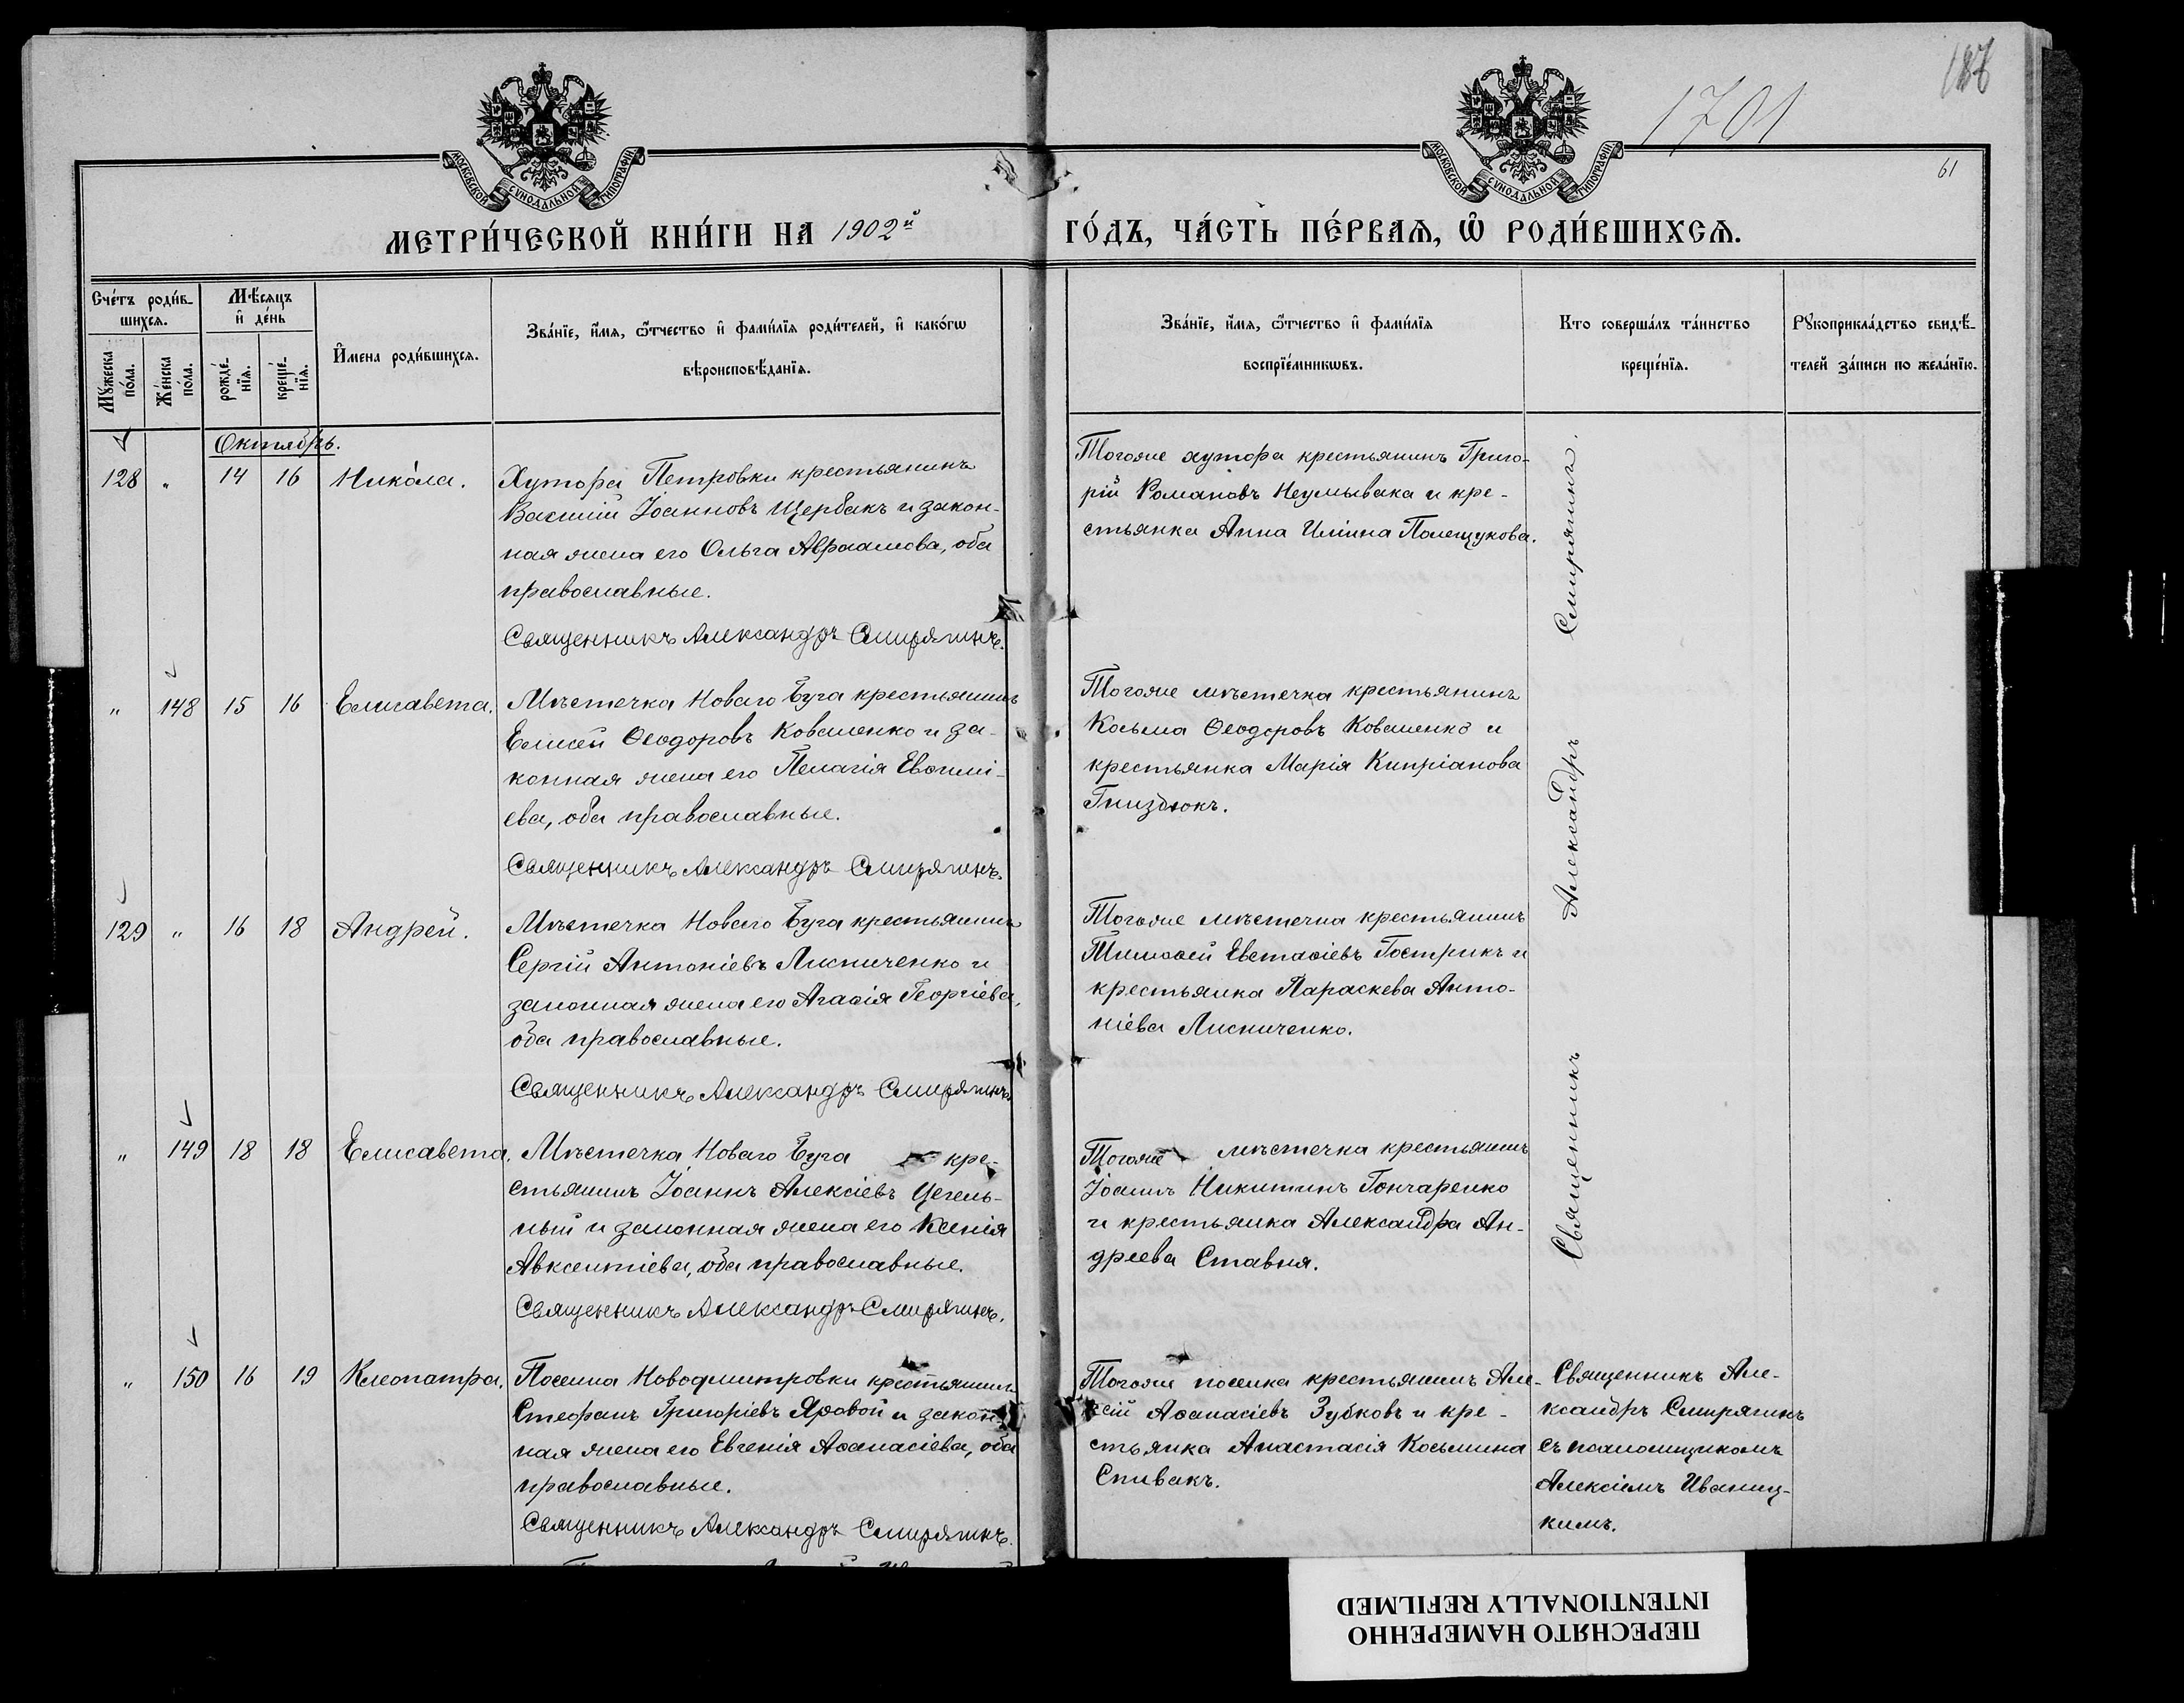 1701
61
МОСКОВСКОЙ СѴНОДАЛЬНОЙ ТИПОГРАФІИ
МОСКОВСКОЙ СѴНОДАЛЬНОЙ ТИПОГРАФІИ
МЕТРИ́ЧЕСКОЙ КНИ́ГИ НА 1902й ГО́ДЪ, ЧА́СТЬ ПЕ́РВАЯ, Ѡ҆ РОДИ́ВШИХСЯ.
Сче́тъ роди́в-
шихся.
Мꙋ́жеска по́ла.
Же́нска по́ла.
Мѣ́сяцъ и҆ де́нь
рожде́нїя.
креще́нїя.
И҆мена роди́вшихся.
Зва́нїе, и҆́мя, ѻ҆́тчество и҆ фами́лїя роди́телей, и҆ како́гѡ
вѣроисповѣ́данїя.
Зва́нїе, и҆́мя, ѻ҆́тчество и҆ фами́лїя
воспрїе́мникѡвъ.
Кто соверша́лъ та́инство
креще́нїя.
Рꙋкоприкла́дство свидѣ́-
телей за́писи по жела́нїю.
Октябрь.
128 " 14 16 Никола.
Хутора Петровки крестьянинъ
Василій Іоанновъ Щербакъ и закон-
ная жена его Ольга Авраамова, оба
православные.
Священникъ Александръ Смирягинъ.
Тогоже хутора крестьянинъ Григо-
рій Романовъ Неумывака и кре-
стьянка Анна Иліина Полещукова.
" 148 15 16 Елисавета.
Мѣстечка Новаго Буга крестьянинъ
Елисей Ѳеодоровъ Коваленко и за-
конная жена его Пелагія Евѳимі-
ева, оба православные.
Священникъ Александръ Смирягинъ.
Тогоже мѣстечка крестьянинъ
Косьма Ѳеодоровъ Коваленко и
крестьянка Марія Кипріанова
Гниздюкъ.
129 " 16 18 Андрей.
Мѣстечка Новаго Буга крестьянинъ
Сергій Антоніевъ Лисниченко и
законная жена его Агаѳія Георгіева,
оба православные.
Священникъ Александръ Смирягинъ.
Тогоже мѣстечка крестьянинъ
Тимоѳей Евстаѳіевъ Гострикъ и
крестьянка Параскева Анто-
ніева Лисниченко.
" 149 18 18 Елисавета.
Мѣстечка Новаго Буга кре-
стьянинъ Іоаннъ Алексіевъ Цегель-
ный и законная жена его Ксенія
Авксентіева, оба православные.
Священникъ Александръ Смирягинъ.
Тогоже мѣстечка крестьянинъ
Іоаннъ Никитинъ Гончаренко
и крестьянка Александра Ан-
дреева Ставня.
Священникъ Александръ Смирягинъ.
" 150 16 19 Клеопатра.
Поселка Новодмитровки крестьянинъ
Стефанъ Григоріевъ Яровой и закон-
ная жена его Евгенія Аѳанасіева, оба
православные.
Священникъ Александръ Смирягинъ.
Тогоже поселка крестьянинъ Але-
ксій Аѳанасіевъ Зубковъ и кре-
стьянка Анастасія Косьмина
Спивакъ.
Священникъ Але-
ксандръ Смирягинъ
съ псаломщикомъ
Алексіемъ Иваниц-
кимъ.
ПЕРЕСНЯТО НАМЕРЕННО
INTENTIONALLY REFILMED